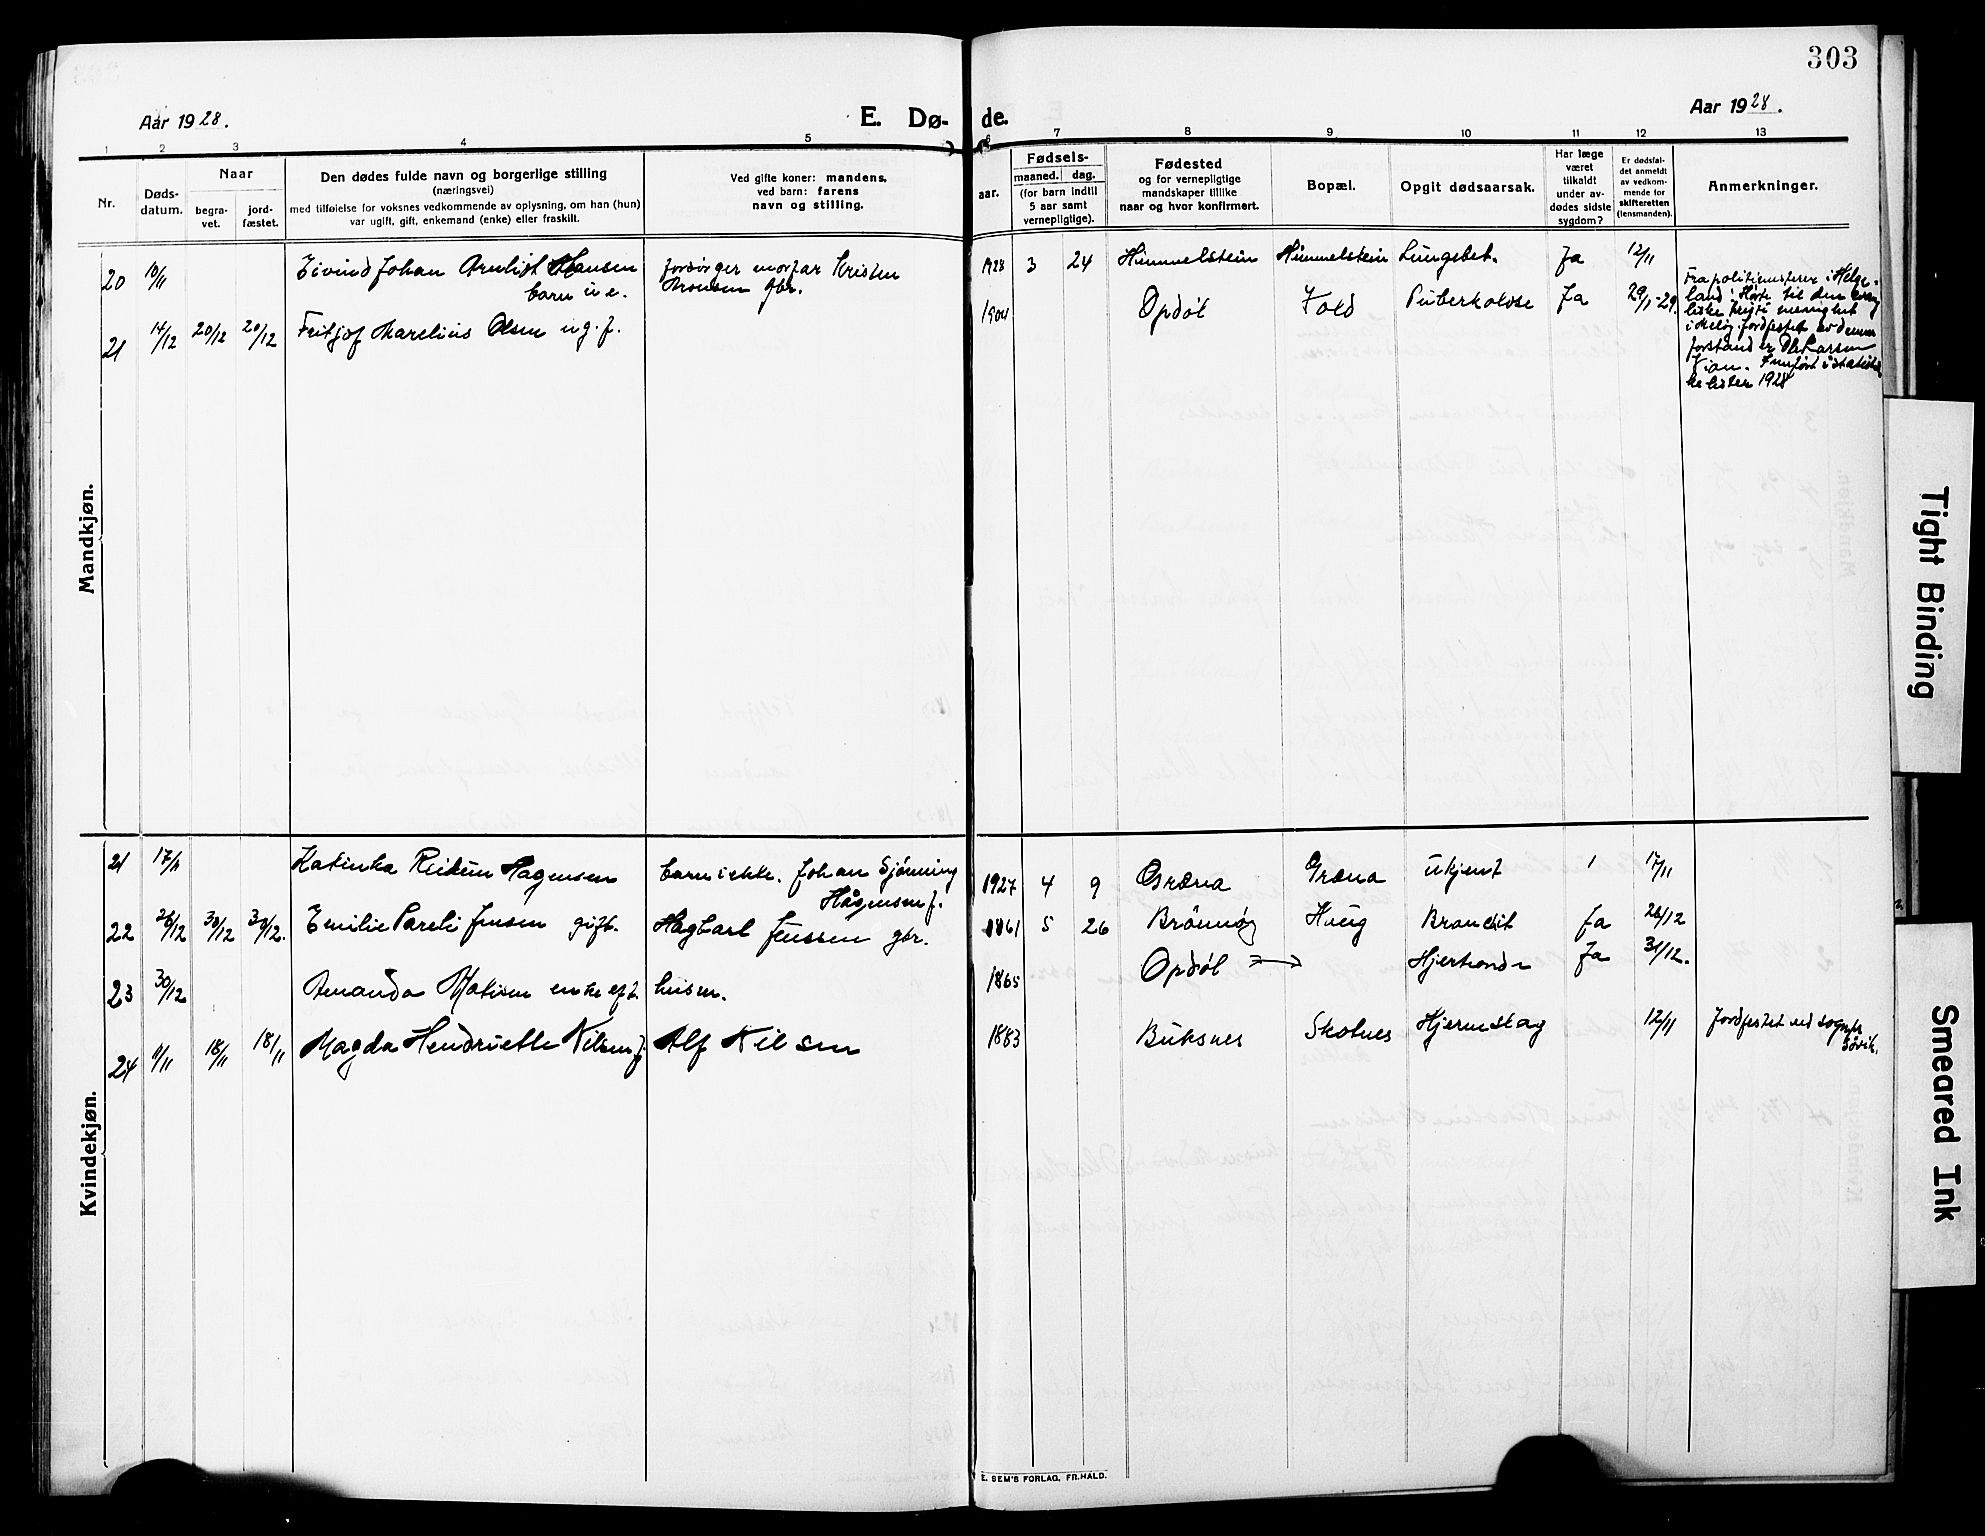 303
Aar 1928.
E. Dø-
de.
Aar 1928.
1 2 3 4 5 6 7 8 9 10 11 12 13
Nr.
Døds-
datum.
Naar
begra-
vet.
jord-
fæstet.
Den dødes fulde navn og borgerlige stilling
(næringsvei)
med tilføielse for voksnes vedkommende av oplysning, om han (hun)
var ugift, gift, enkemand (enke) eller fraskilt.
Ved gifte koner: mandens,
ved barn: farens
navn og stilling.
aar.
Fødsels-
maaned. dag.
(for barn indtil
5 aar samt
vernepligtige).
Fødested
og for vernepligtige
mandskaper tillike
naar og hvor konfirmert.
Bopæl.
Opgit dødsaarsak.
Har læge
været
tilkaldt
under av-
dødes sidste
sygdom?
Er dødsfal-
det anmeldt
av vedkom-
mende for
skifteretten
(lensmanden).
Anmerkninger.
Mandkjøn.
20 10/11 Eivind Johan Hansen forsörger morfar Kristen 1928 3 24 Himmelstein Himmelstein Lungebet. Ja 12/11
barn u e. gbr.
21 14/12 20/12 20/12 Fritjof Marelius Olsen ug. f. 1904 Opdøl Fold Tuberkolose Ja 29/1-29.
Fra politimesteren i Helge-
land i
til den
i jordfestet av denne
forstander Ole Larsen
1928
Kvindekjøn.
21 17/11 Katinka Reidun Hagensen barn i ekte. Johan Sjönning 1927 4 9 Græna Græna ukjent 1 17/11
Hågensen f.
22 26/12 30/12 30/12. Emilie Pareli Jensen gift. Hagbart Jenssen gbr. 1861 5 26 Brönnøy Haug Brandsit Ja 28/12
23 30/12 Amanda Matisen enke eft. husm. 1865 Opdøl Hjertonde Ja 31/12.
24 11/11 18/11 18/11 Magda Hendriette Nilsen f. Alf Nilsen 1883 Buksnes Skotnes Hjerneslag 12/11 Jordfestet ved sognepr
Sövik.
E. SEM'S FORLAG, FR.HALD.
Tight Binding
Smeared Ink